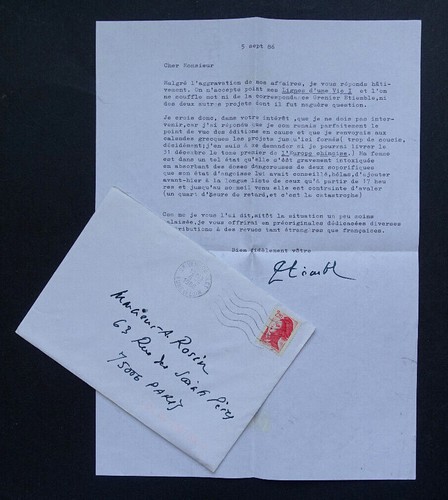 5 sept 86
Cher Monsieur
Malgré l'aggravation de mes affaires, je vous réponds hâti-
vement. On n'accepte point mes Lignes d'une Vie I et l'on
ne souffle mot ni de la correspondance Grenier Etiemble, ni
des deux autres projets dont il fut naguère question.
Je crois donc, dans votre intérêt, que je ne dois pas inter-
venir, car j'ai répondu que je comprenais parfaitement le
point de vue des éditions en cause et que je renvoyais aux
calendes grecques les projets jus qu'ici formés( trop de soucis,
décidément; j'en suis à me demander si je pourrai livrer le
31 décembre le tome premier de l'Europe chinoise.) Ma femme
est dans un tel état qu'elle s'est gravement intoxiquée
en absorbant des doses dangereuses de deux soporifiques
que son état d'angoisse lui avait conseillé, hélas, d'ajouter
avant-hier à la longue liste de ceux qu'à partir de 17 heu
res et jusqu'au sommeil venu elle est contrainte d'avaler
(un quart d'heure de retard, et c'est la catastrophe)
Comme je vous l'ai dit, sitôt la situation un peu moins
malaisée, je vous offrirai en préoriginales dédicacées diverses
contributions à des revues tant étrangères que françaises.
Bien fidèlement vôtre
Etiemble
Monsieur A. Rosin
63 Rue des Saints Pères
75006 PARIS